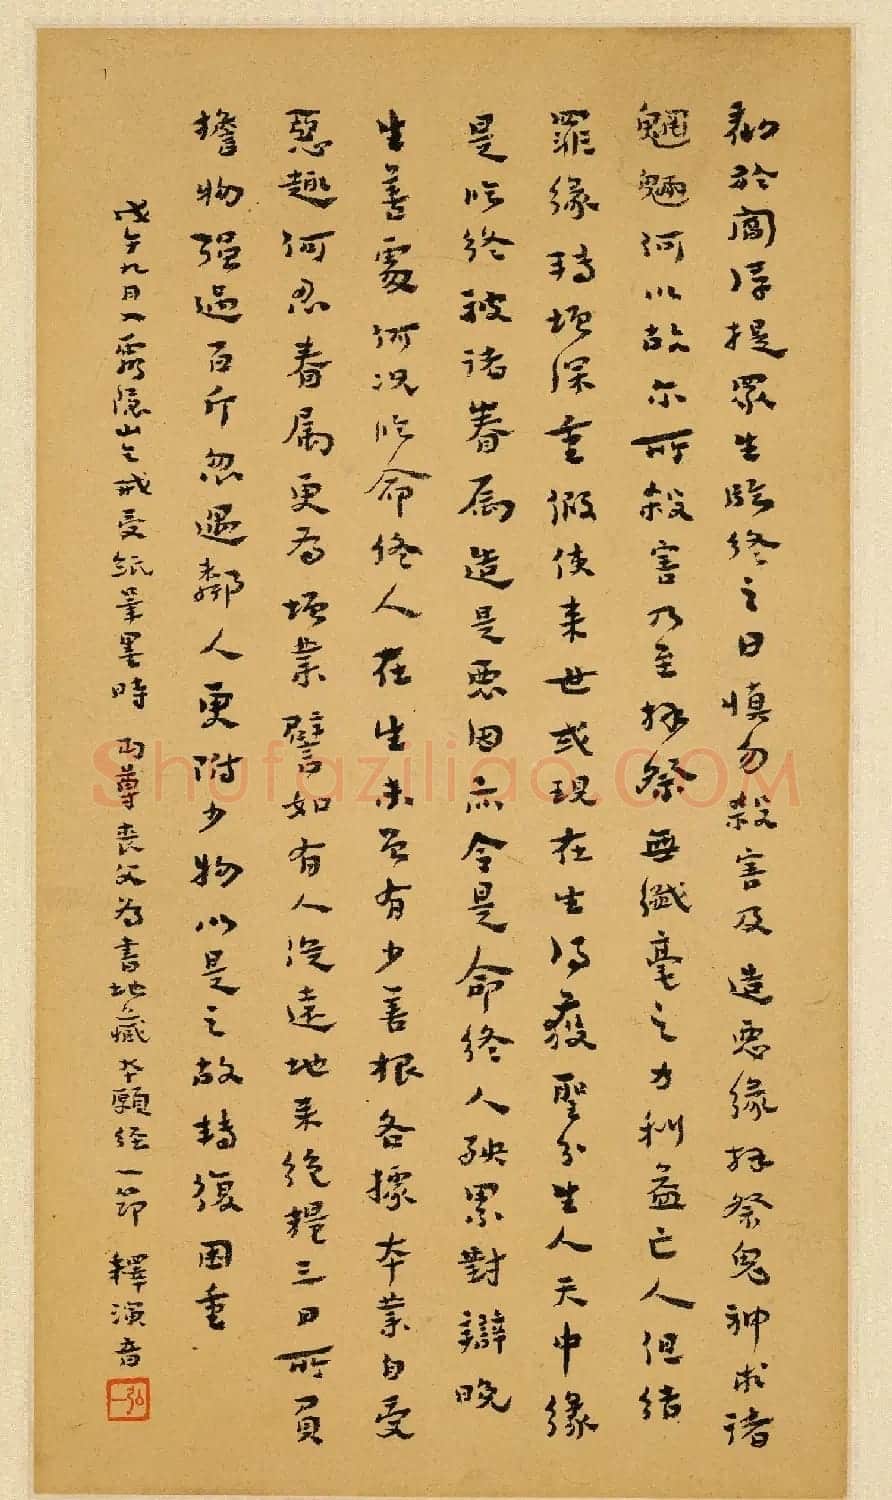 勸於閻浮提眾生臨終之日慎勿殺害及造惡緣拜祭鬼神求諸
魍魎何以故爾所殺害乃至拜祭無纖毫之力利益亡人但結
罪緣轉增深重假使来世或現在生得獲聖分生人天中緣
是臨終被諸眷屬造是惡因亦令是命終人殃累對辯晚
生善處何況臨命終人在生未曾有少善根各據本業自受
惡趣何忍眷属更為增業譬如有人從遠地来絕糧三日所負
擔物强過百斤忽遇鄰人更附少物以是之故轉復困重
戊午九月入靈隱山乞戒受紙筆墨時 丏尊喪父為書地藏本願經一節 釋演音
弘一
Shufaziliao.COM